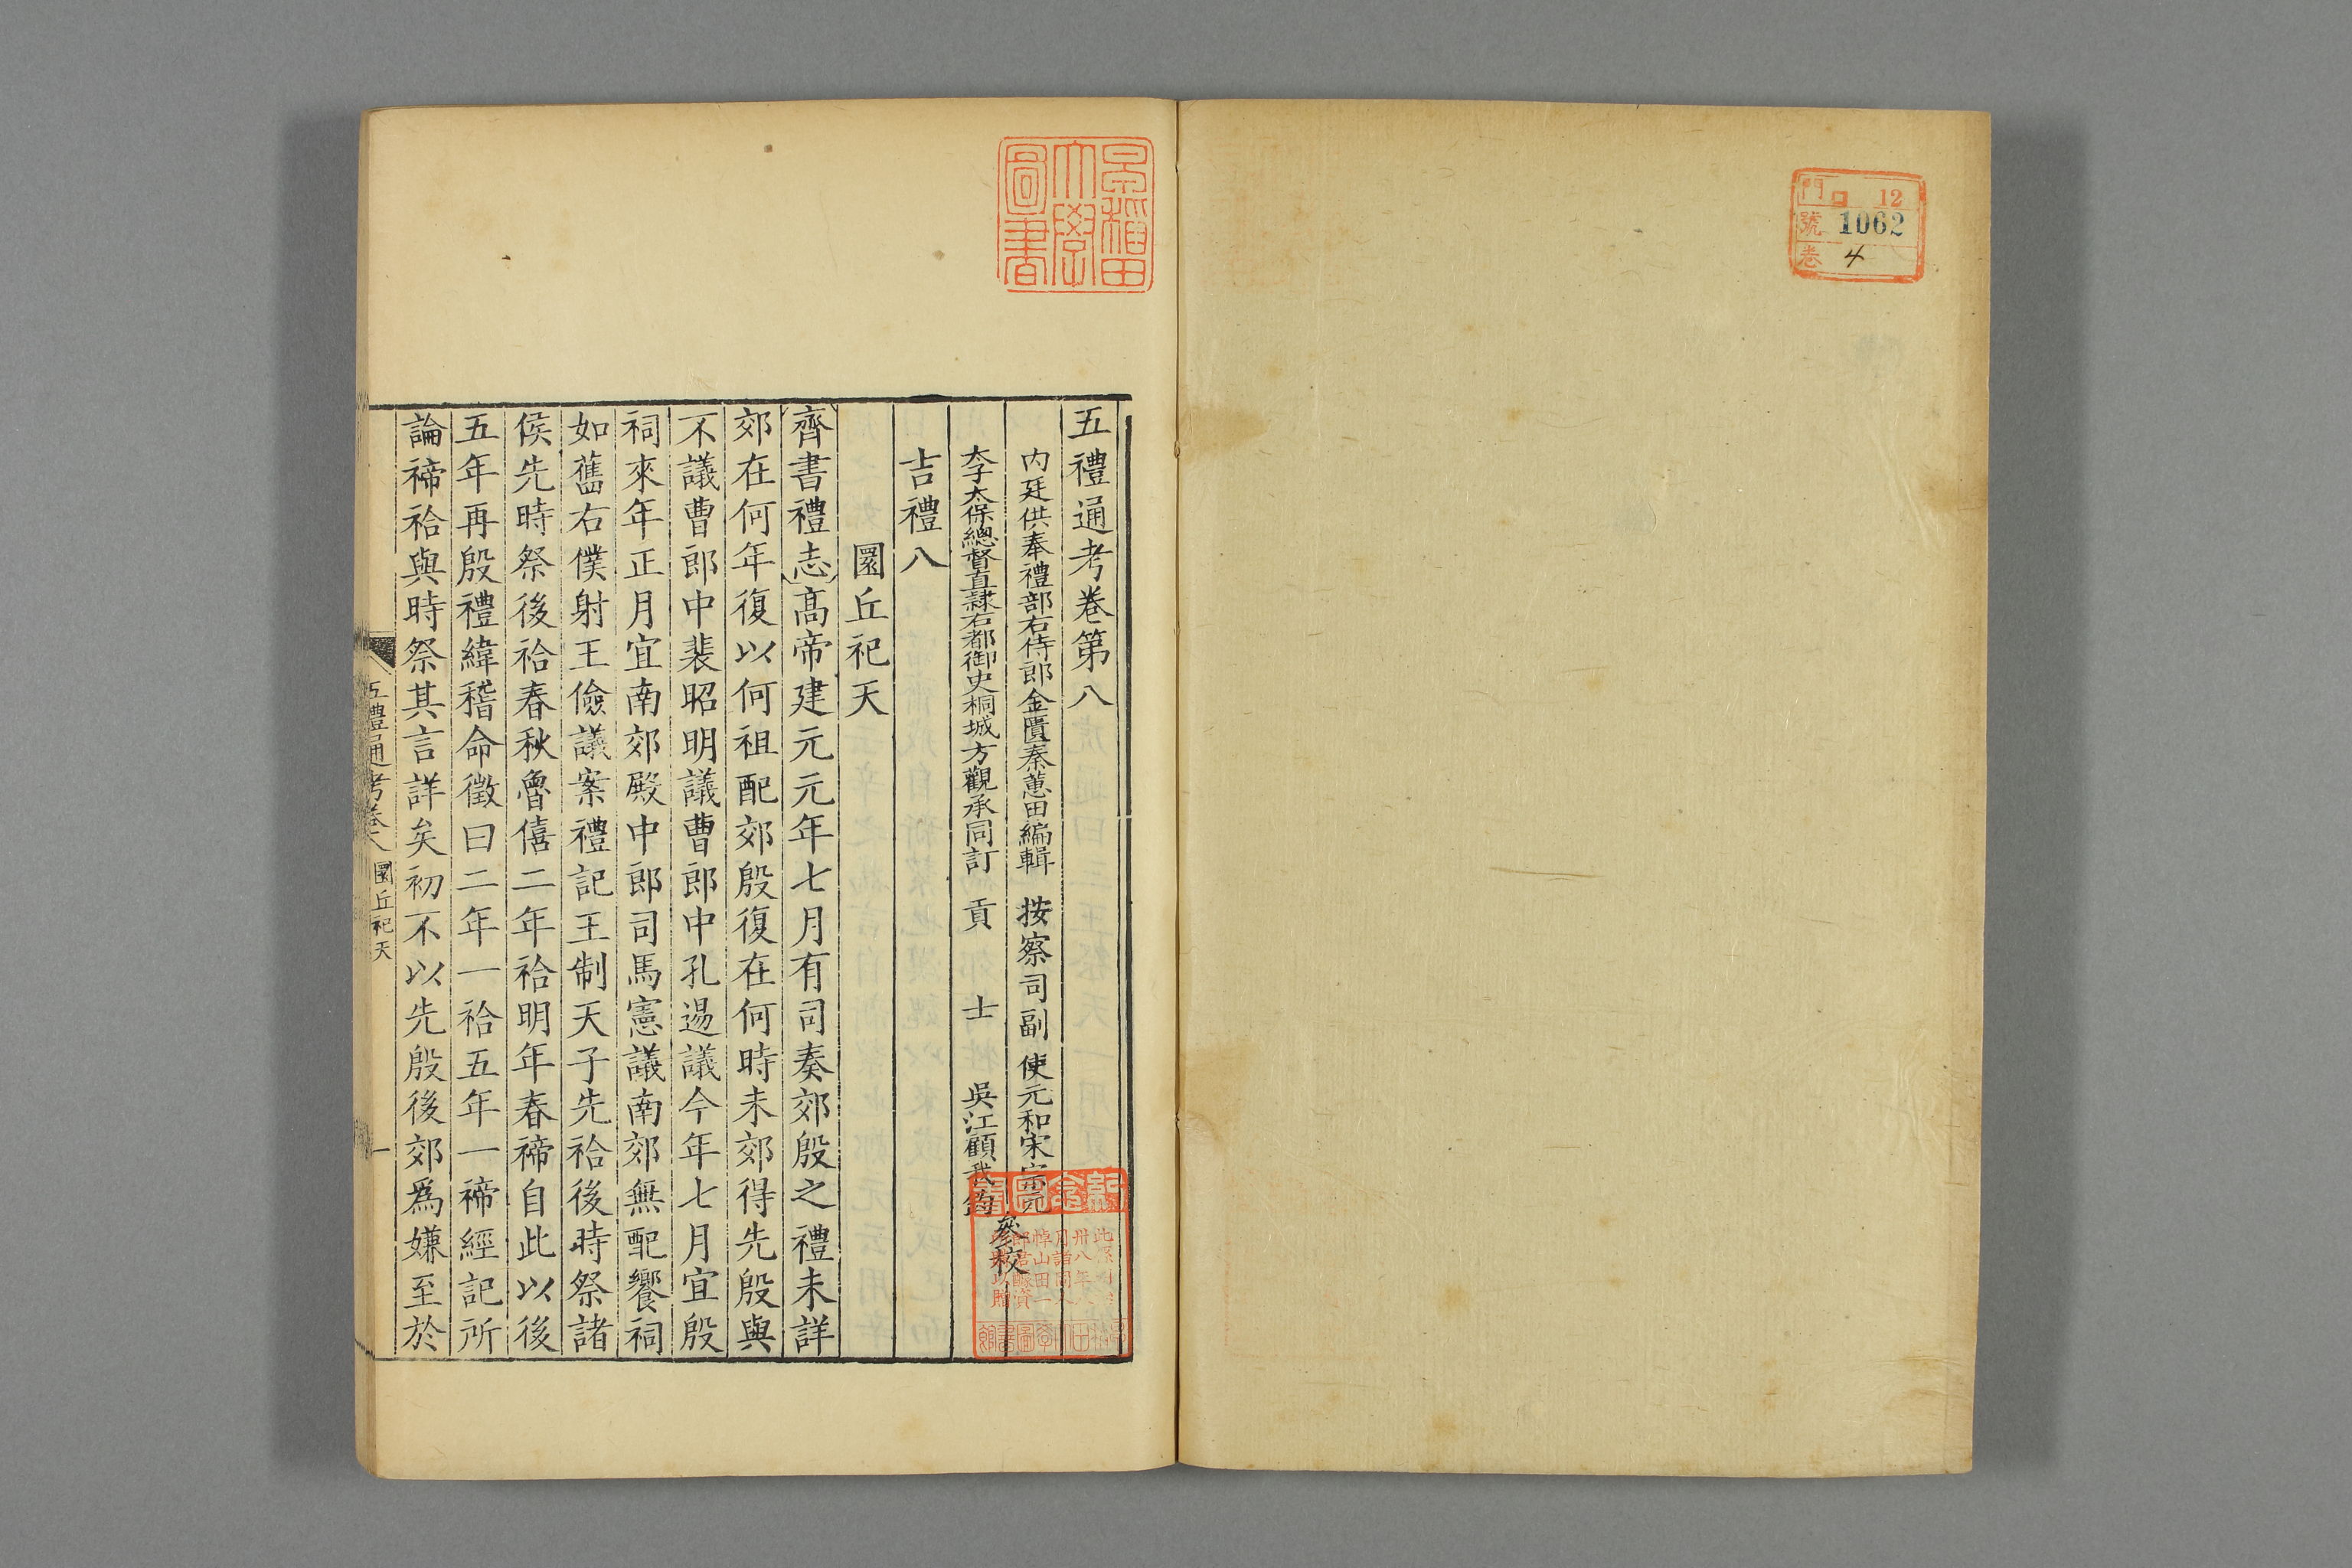 門 口 12
號 1062
卷 4
早稲田
大學
圖書
五禮通考卷第八
内廷供奉禮部右侍郎金匱秦蕙田編輯 按察司副使元和宋宗元
太子太保總督直隸右都御史桐城方觀承同訂 貢士吳江顧我鈞
參校
吉禮八
圜丘祀天
齊書禮志高帝建元元年七月有司奏郊殷之禮未詳
郊在何年復以何祖配郊殷復在何時未郊得先殷與
不議曹郎中裴昭明議曹郎中孔逷議今年七月宜殷
祠來年正月宜南郊殿中郎司馬憲議南郊無配饗祠
如舊右僕射王儉議案禮記王制天子先祫後時祭諸
侯先時祭後祫春秋魯僖二年祫明年春禘自此以後
五年再殷禮緯稽命徵曰二年一祫五年一禘經記所
論禘祫與時祭其言詳矣初不以先殷後郊爲嫌至於
五禮通考卷八 圜丘祀天 一